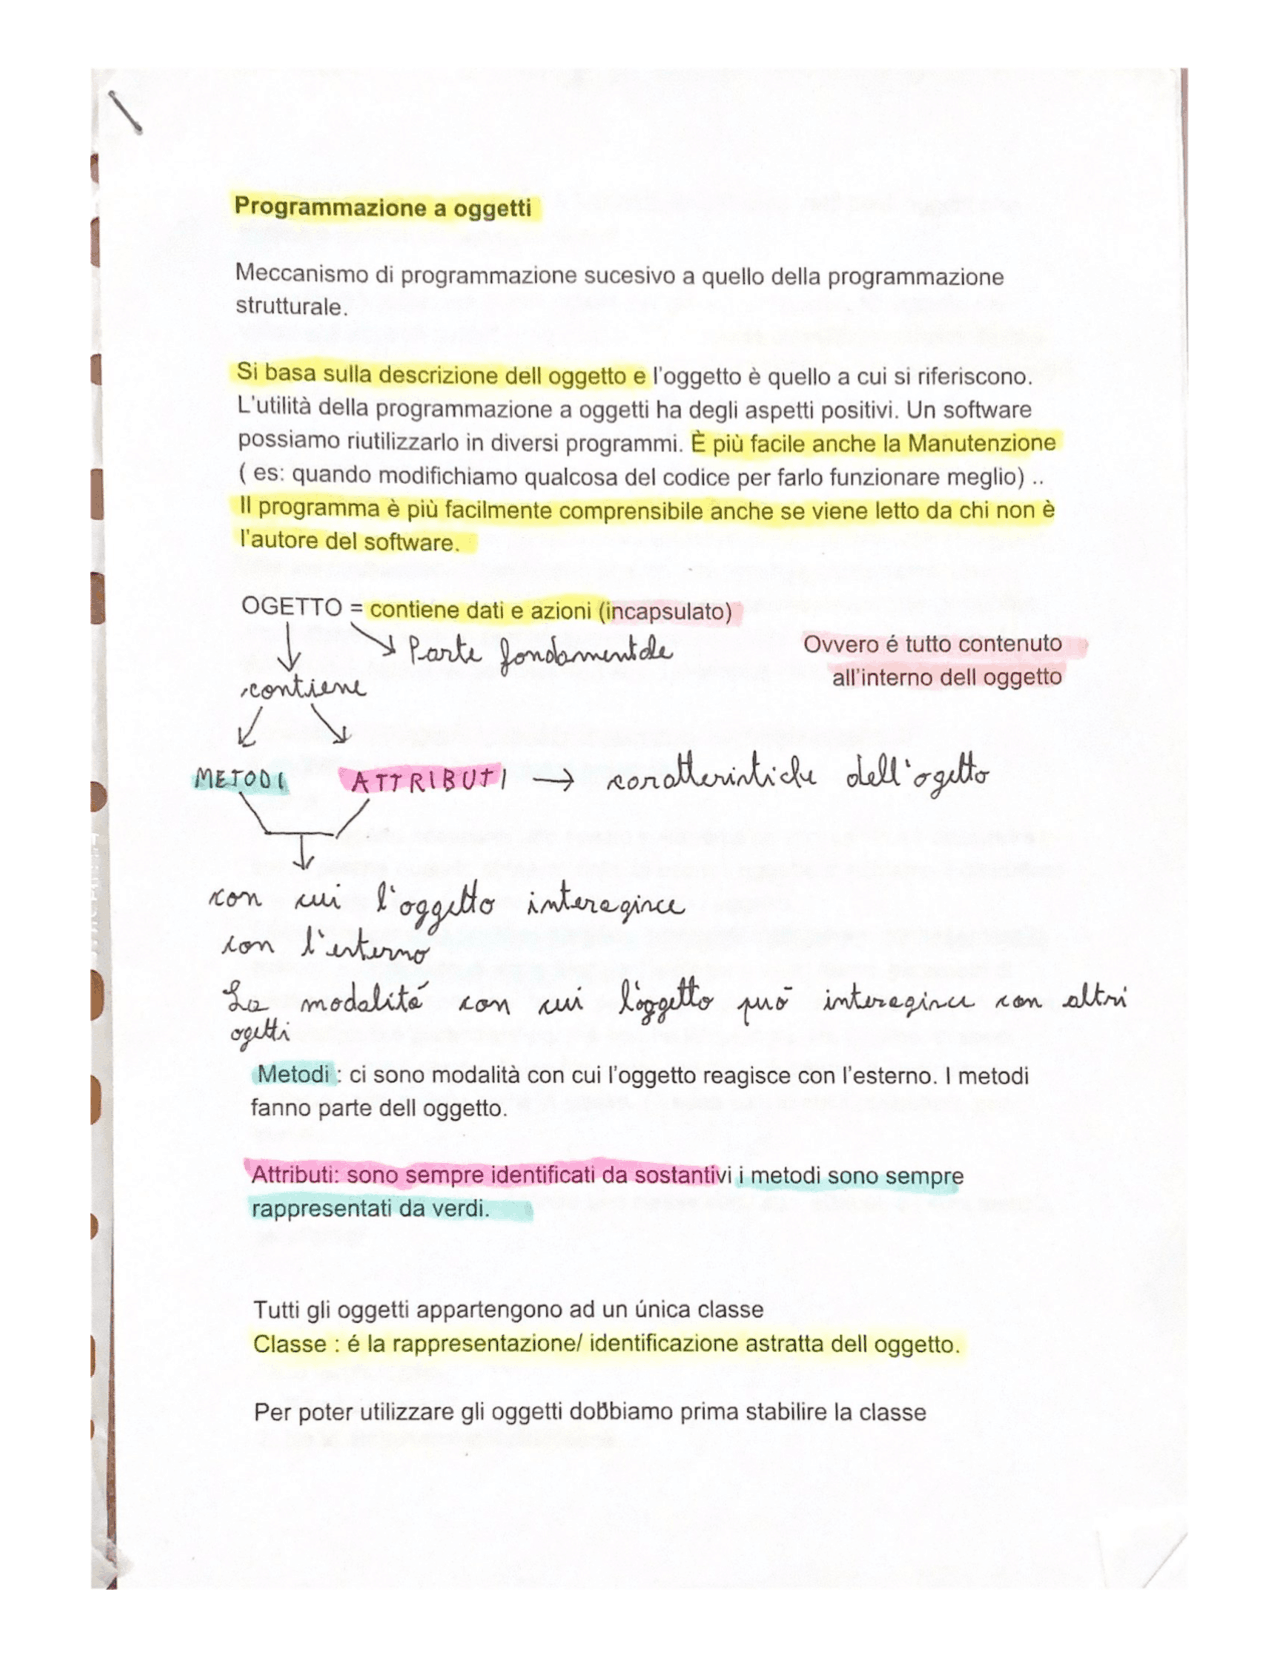 Programmazione a oggetti
Meccanismo di programmazione sucesivo a quello della programmazione
strutturale.
Si basa sulla descrizione dell oggetto e l'oggetto è quello a cui si riferiscono.
L'utilità della programmazione a oggetti ha degli aspetti positivi. Un software
possiamo riutilizzarlo in diversi programmi. È più facile anche la Manutenzione
( es: quando modifichiamo qualcosa del codice per farlo funzionare meglio) ..
Il programma è più facilmente comprensibile anche se viene letto da chi non è
l'autore del software.
OGETTO = contiene dati e azioni (incapsulato)
Parte fondamentale
Ovvero é tutto contenuto
all'interno dell oggetto
contiene
METODI ATTRIBUTI → caratteristiche dell'ogetto
con cui l'oggetto interagisce
con l'esterno
La modalitá con cui l'oggetto può interagisce con altri
ogetti
Metodi : ci sono modalità con cui l'oggetto reagisce con l'esterno. I metodi
fanno parte dell oggetto.
Attributi: sono sempre identificati da sostantivi i metodi sono sempre
rappresentati da verdi.
Tutti gli oggetti appartengono ad un única classe
Classe : é la rappresentazione/ identificazione astratta dell oggetto.
Per poter utilizzare gli oggetti dobbiamo prima stabilire la classe